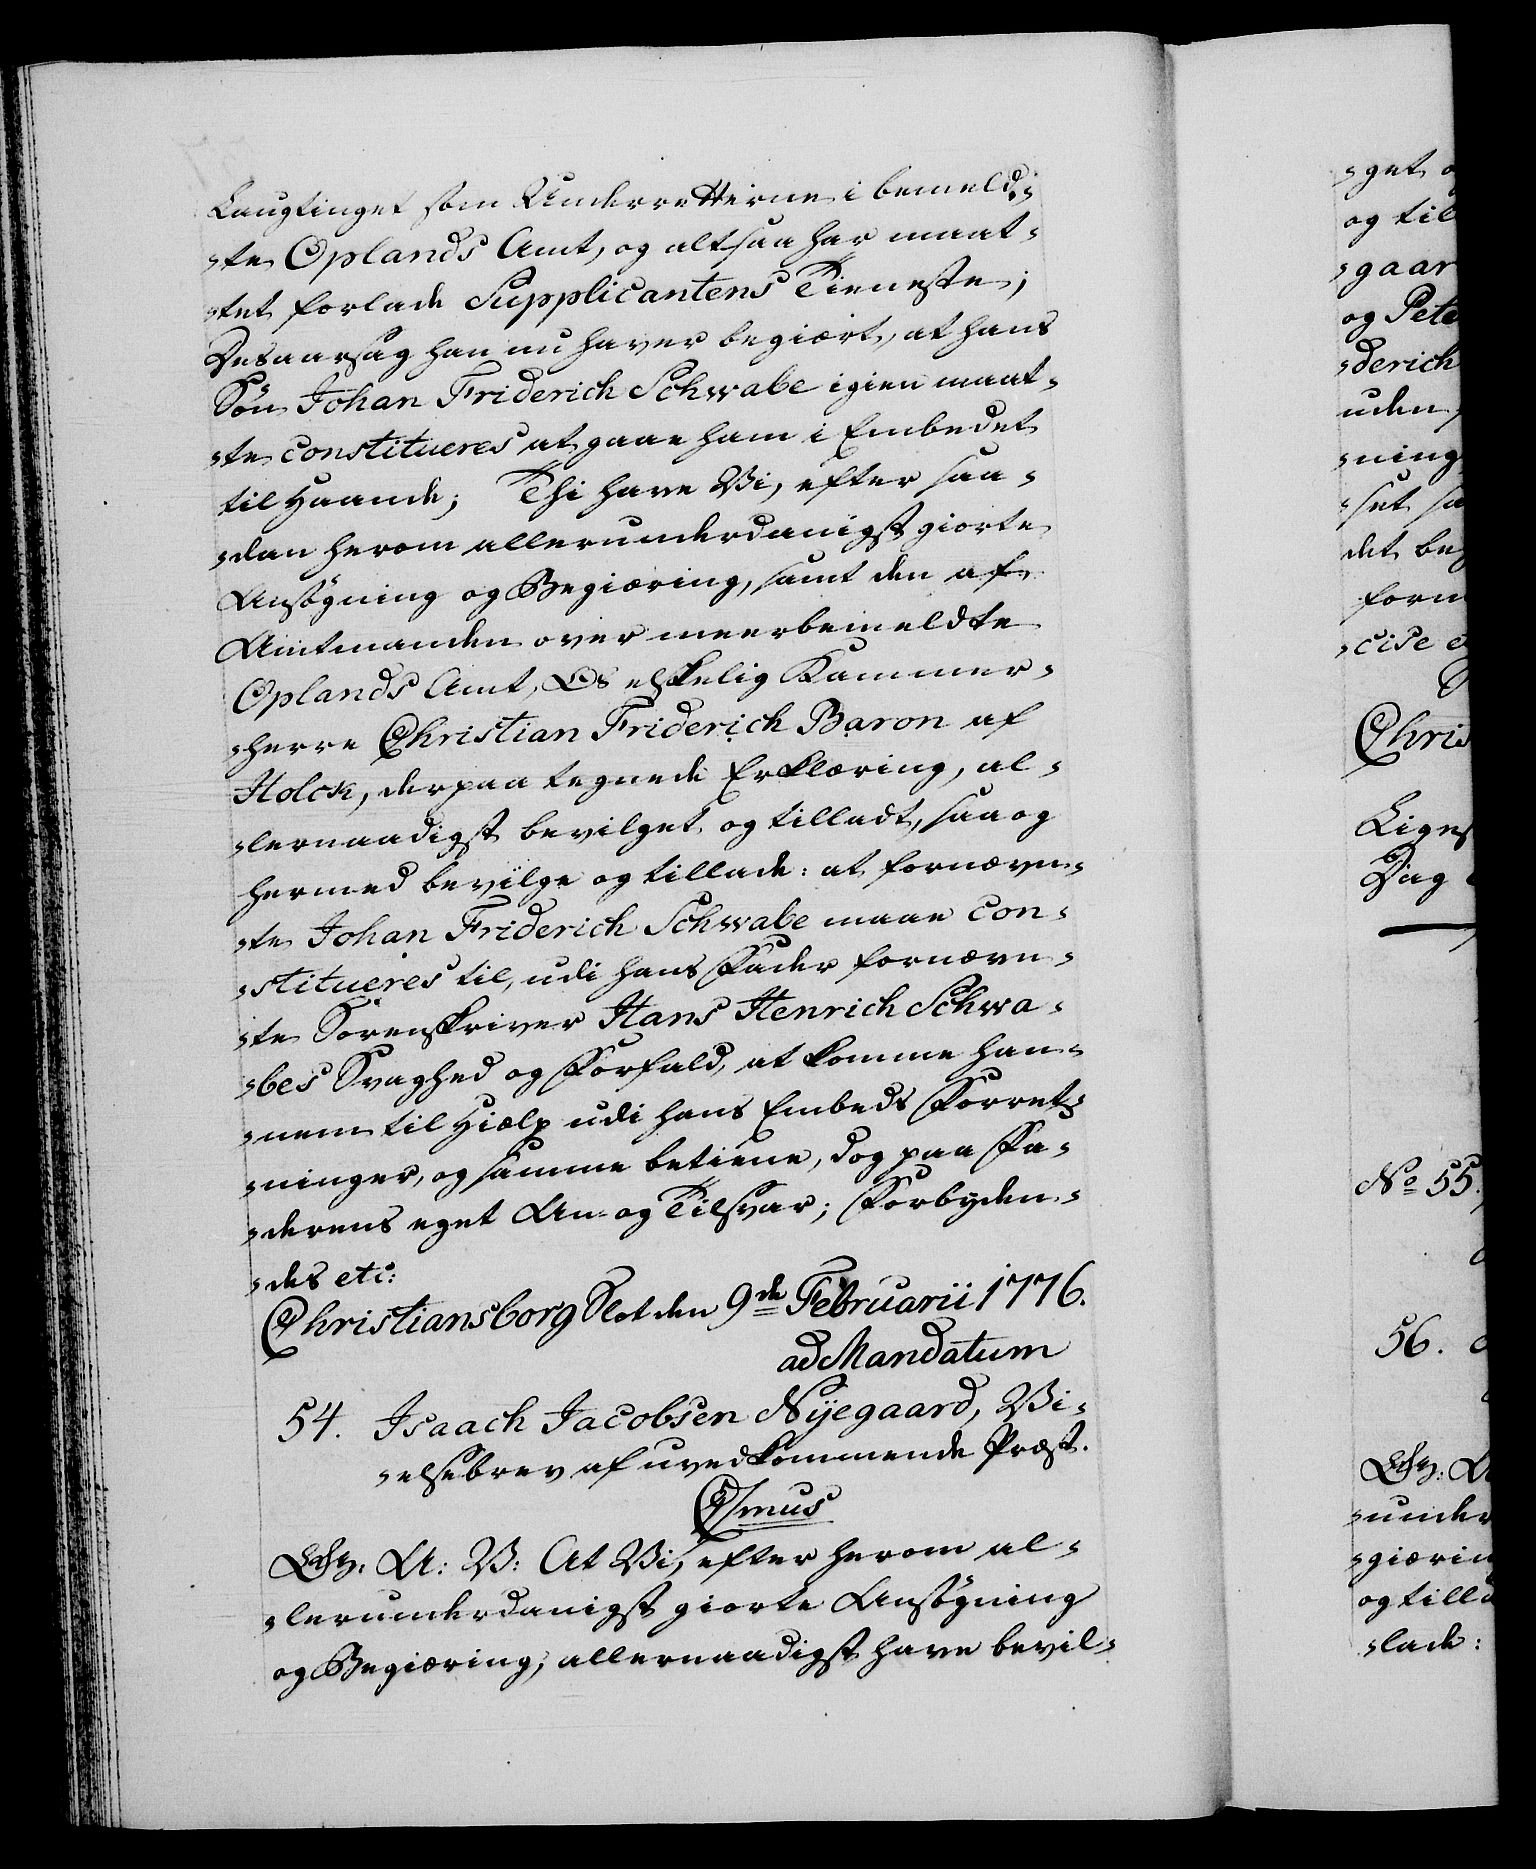 Laugtinget som Underretterne i bemeld-
-te Oplands Amt, og altsaa har maat-
-tet forlade Supplicantens Tieneste;
Desaarsag han nu haver begiært, at hans
Søn Johan Friderich Schwabe igien maat-
-te constitueres at gaae ham i Embedet
til Haande; Thi have Vi, efter saa-
-dan herom allerunderdanigst giorte
Ansøgning og Begiæring, samt den af
Amtmanden over meerbemeldte
Oplands Amt, Os elskelig Kammer-
-herre Christian Friderich Baron af
Holck, derpaa tegnede Erklæring, al-
-lernaadigst bevilget og tilladt, saa og
hermed bevilge og tillade: at fornævn-
-te Johan Friderich Schwabe maae con-
-stitueres til, udi hans Fader fornævn-
-te Sorenskriver Hans Henrich Schwa-
-bes Svaghed og Forfald, at komme han-
-nem til Hielp udi hans Embeds Forret-
-ninger, og samme betiene, dog paa Fa-
-derens eget An- og Tilsvar; Forbyden-
-des etc:
Christiansborg Slot den 9de Februarii 1776.
ad Mandatum
54. Isaach Jacobsen Nÿegaard, Vi-
-elsebrev af uvedkommende Præst.
C7mus
G. A: V: At Vi, efter herom al-
-lerunderdanigst giorte Ansøgning
og Begiæring, allernaadigst have bevil-
-get
og til
-gaar
og Pete
-derich
uden
-ning
-set sa
det beg
form
-cise
Chris
Liges
Dag
No 55.
56.
-under
-giærin
og tilla
-lade: